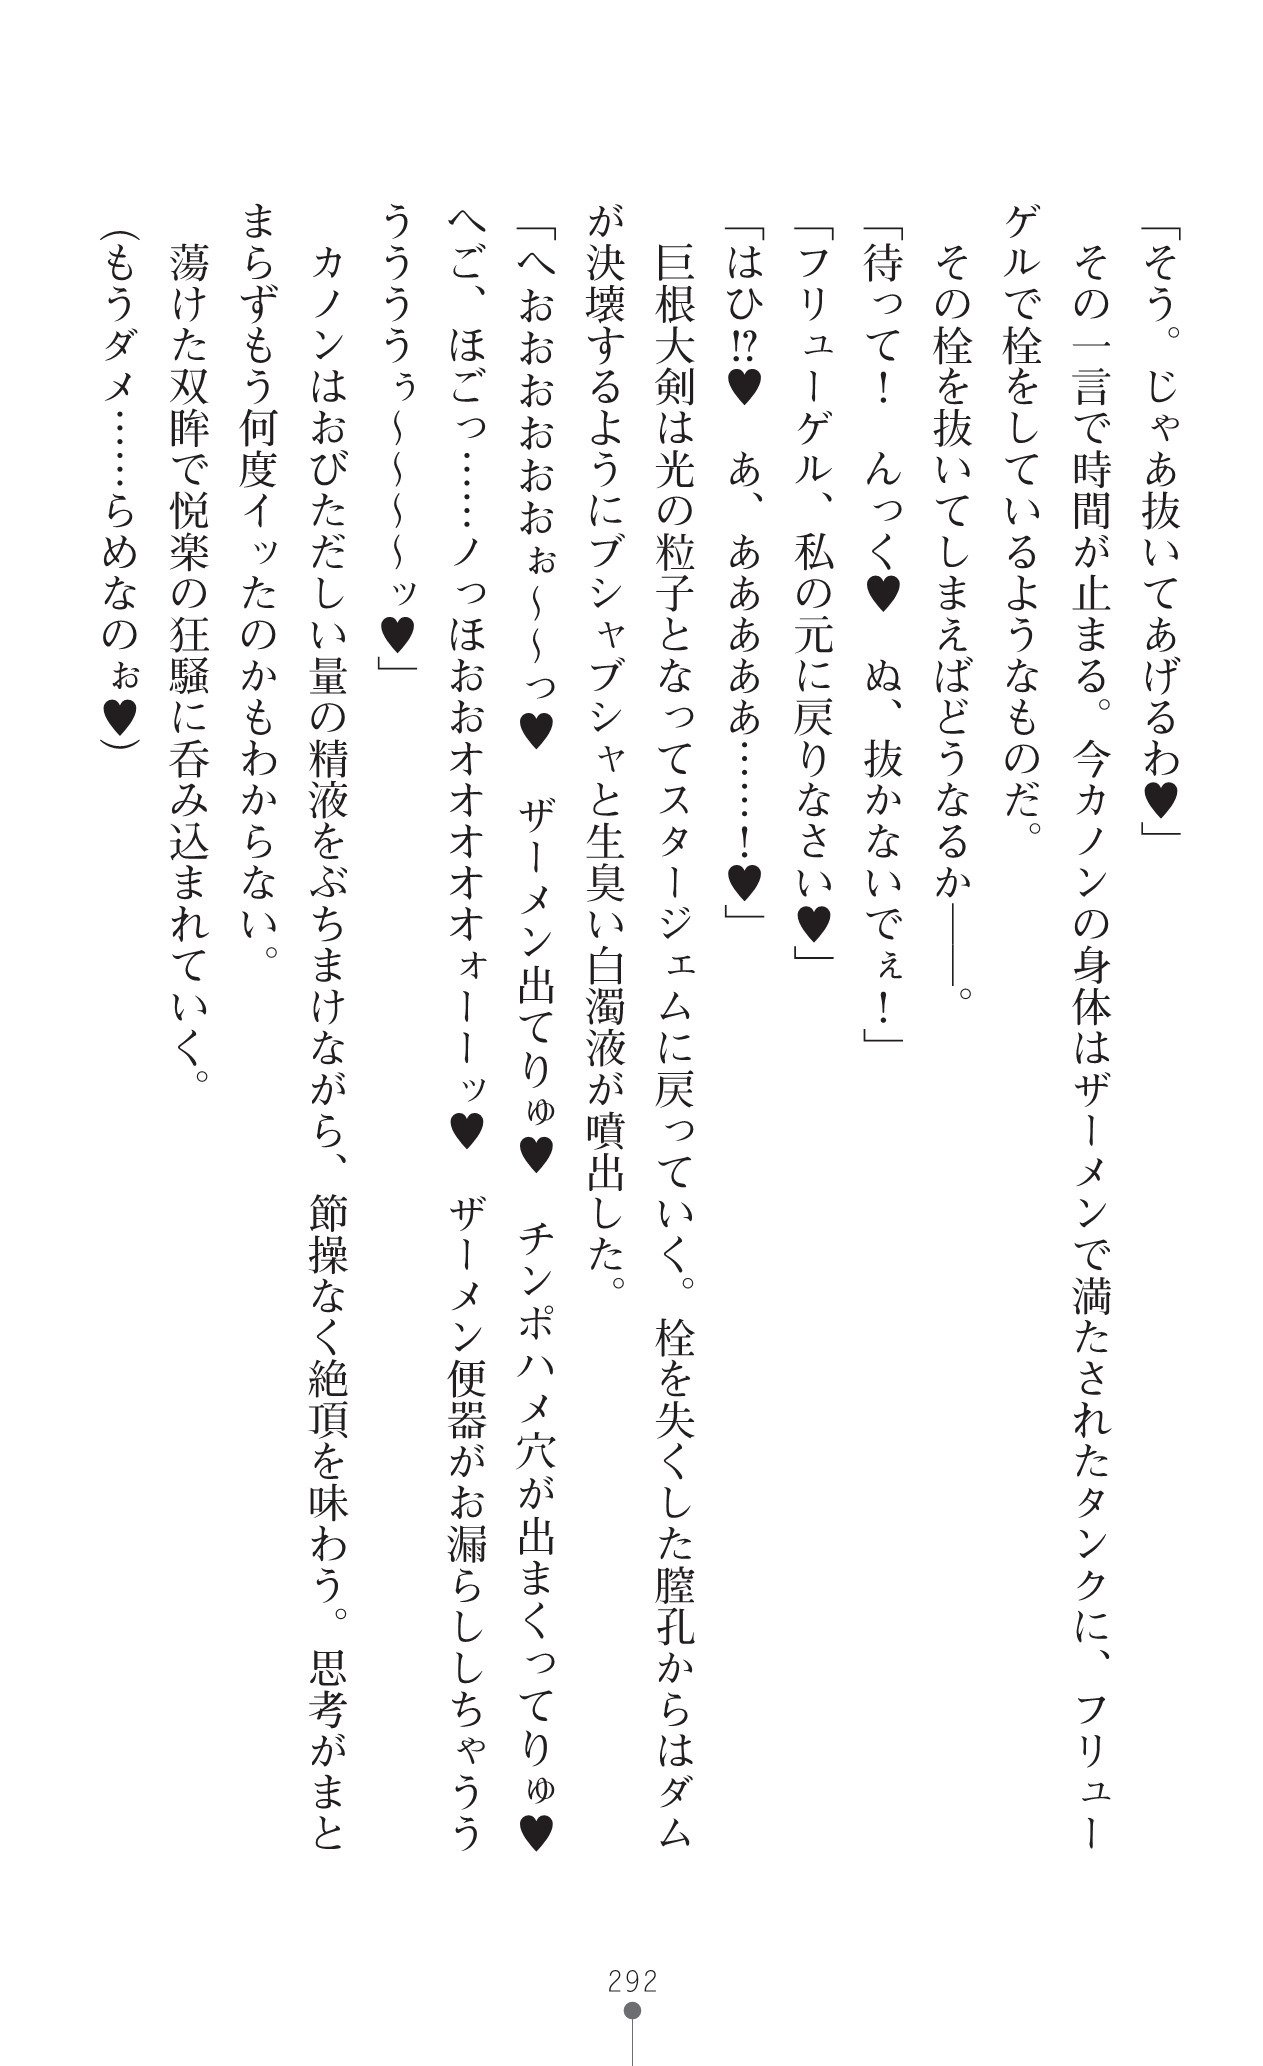 「そう。じゃあ抜いてあげるわ♥」
　その一言で時間が止まる。今カノンの身体はザーメンで満たされたタンクに、フリュー
ゲルで栓をしているようなものだ。
　その栓を抜いてしまえばどうなるか――。
「待って！　んっく♥　ぬ、抜かないでぇ！」
「フリューゲル、私の元に戻りなさい♥」
「はひ!?♥　あ、あああああ……！♥」
　巨根大剣は光の粒子となってスタージェムに戻っていく。栓を失くした膣孔からはダム
が決壊するようにブシャブシャと生臭い白濁液が噴出した。
「へおおおおおおぉ～～っ♥　ザーメン出てりゅ♥　チンポハメ穴が出まくってりゅ♥
へご、ほごっ……ノっほおおオオオオオォーーッ♥　ザーメン便器がお漏らししちゃうう
うううぅ～～～～ッ♥」
　カノンはおびただしい量の精液をぶちまけながら、節操なく絶頂を味わう。思考がまと
まらずもう何度イッたのかもわからない。
　蕩けた双眸で悦楽の狂騒に呑み込まれていく。
（もうダメ……らめなのぉ♥）
292